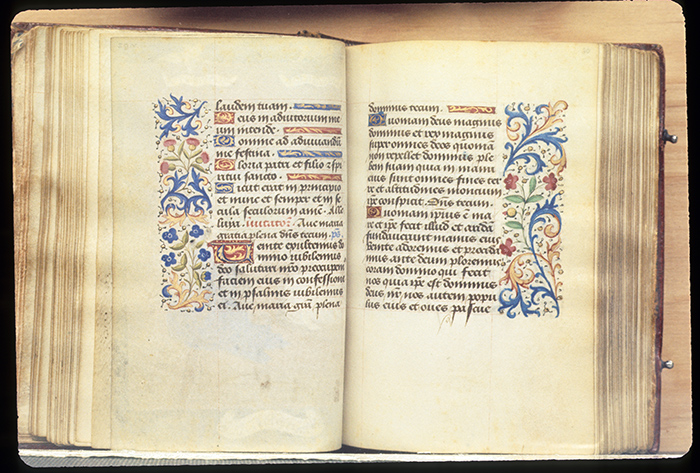 laudem tuam.
Deus in adiutorium me
um intende.
Domine ad adiuvandū
me festina.
Gloria patri et filio z spi
ritui sancto.
Sicut erat in principio
et nunc et semper et in se
cula seculorum amē. Alle
luya. Invitator. Ave maria
gratia plena dn̄s tecum. ps.
Venite exultemus do
mino iubilemus
deo salutari nr̄o preoccupem
faciem eius in confessione
et in psalmis iubilemus
ei. Ave maria grā plena
dominus tecum.
Quoniam deus magnus
dominus et rex magnus
super omnes deos quoniā
non repellet dominus ple
bem suam quia in manu
eius sunt omnes fines ter
re et altitudines montium
ipe conspicit. Dn̄s tecum.
Quoniam ipsius ē ma
re et ipe fecit illud et aridā
fundaverunt manus eius
venite adoremus et procida
mus ante deum ploremus
coram domino qui fecit
nos quia ipe est dominus
deus nr̄ nos autem popu
lus eius et oves pascue